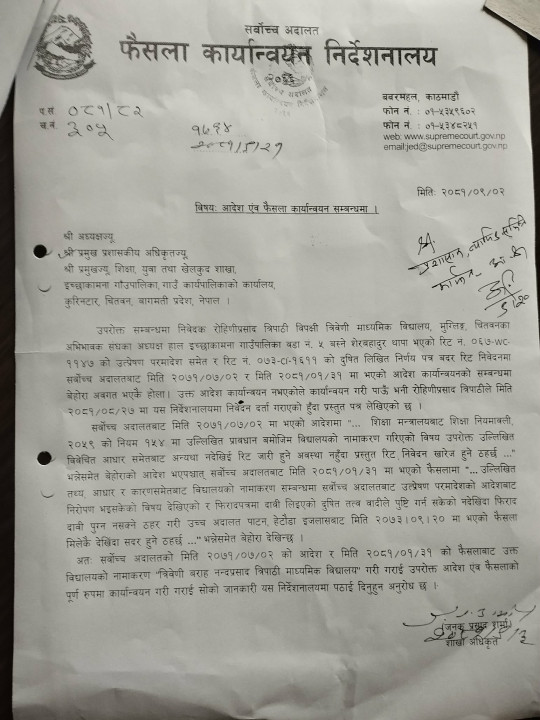 सर्वोच्च अदालत
फैसला कार्यान्वयन निर्देशनालय
बबरमहल, काठमाडौं
प.सं. ०८१/८२
फोन नं. : ०१-५३५९६०२
च.नं. ३०५
फोन नं. : ०१-५३४८२५१
web: www.supremecourt.gov.np
email:jed@supremecourt.gov.np
मिति: २०८१/०९/०२
विषय: आदेश एंव फैसला कार्यान्वयन सम्बन्धमा ।
श्री अध्यक्षज्यू
श्री प्रमुख प्रशासकीय अधिकृतज्यू
श्री प्रमुखज्यू, शिक्षा, युवा तथा खेलकुद शाखा,
इच्छाकामना गाँउपालिका, गाउँ कार्यपालिकाको कार्यालय,
कुरिनटार, चितवन, बागमती प्रदेश, नेपाल ।
उपरोक्त सम्बन्धमा निवेदक रोहिणीप्रसाद त्रिपाठी विपक्षी त्रिवेणी माध्यमिक विद्यालय, मुग्लिङ्ग, चितवनका
अभिभावक संघका अध्यक्ष हाल इच्छाकामना गाउँपालिका वडा नं. ५ बस्ने शेरबहादुर थापा भएको रिट नं. ०६७-WC-
११४७ को उत्प्रेषण परमादेश समेत र रिट नं. ०७३-CI-१६११ को दुषित लिखित निर्णय पत्र बदर रिट निवेदनमा
सर्वोच्च अदालतबाट मिति २०७१/०७/०२ र मिति २०८१/०१/३१ मा भएको आदेश कार्यान्वयनको सम्बन्धमा
बेहोरा अवगत भएकै होला । उक्त आदेश कार्यान्वयन नभएकोले कार्यान्वयन गरी पाऊँ भनी रोहिणीप्रसाद त्रिपाठीले मिति
२०८१/०८/२७ मा यस निर्देशनालयमा निवेदन दर्ता गराएको हुँदा प्रस्तुत पत्र लेखिएको छ ।
सर्वोच्च अदालतबाट मिति २०७१/०७/०२ मा भएको आदेशमा "... शिक्षा मन्त्रालयबाट शिक्षा नियमावली,
२०५९ को नियम १५४ मा उल्लिखित प्रावधान बमोजिम विद्यालयको नामाकरण गरिएको विषय उपरोक्त उल्लिखित
विवेचित आधार समेतबाट अन्यथा नदेखिई रिट जारी हुने अवस्था नहुँदा प्रस्तुत रिट निवेदन खारेज हुने ठहर्छ ..."
भन्नेसमेत बेहोराको आदेश भएपश्चात् सर्वोच्च अदालतबाट मिति २०८१/०१/३१ मा भएको फैसलामा "... उल्लिखित
तथ्य, आधार र कारणसमेतबाट विद्यालयको नामाकरण सम्बन्धमा सर्वोच्च अदालतबाट उत्प्रेषण परमादेशको आदेशबाट
निरोपण भइसकेको विषय देखिएको र फिरादपत्रमा दावी लिइएको दुषित तत्व वादीले पुष्टि गर्न सकेको नदेखिदा फिराद
दावी पुग्न नसक्ने ठहर गरी उच्च अदालत पाटन, हेटौडा इजलासबाट मिति २०७३।०९।२० मा भएको फैसला
मिलेकै देखिंदा सदर हुने ठहर्छ ..." भन्नेसमेत बेहोरा देखिन्छ ।
अतः सर्वोच्च अदालतको मिति २०७१/०७/०२ को आदेश र मिति २०८१/०१/३१ को फैसलाबाट उक्त
विद्यालयको नामाकरण "त्रिवेणी बराह नन्दप्रसाद त्रिपाठी माध्यमिक विद्यालय" गरी गराई उपरोक्त आदेश एंव फैसलाको
पूर्ण रुपमा कार्यान्वयन गरी गराई सोको जानकारी यस निर्देशनालयमा पठाई दिनुहुन अनुरोध छ ।
(जनक प्रसाद शर्मा)
शाखा अधिकृत